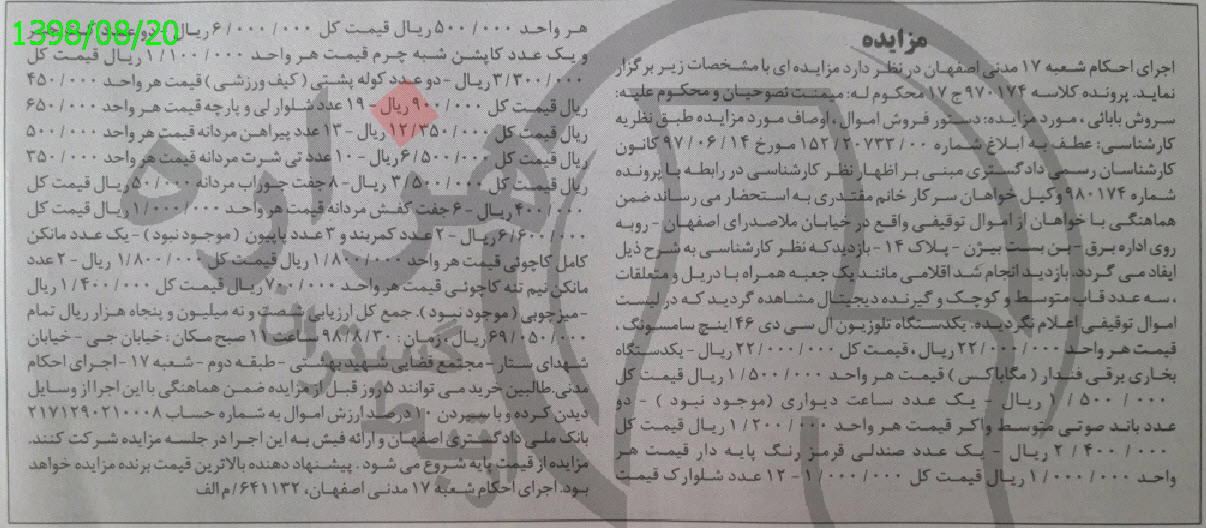 1398/08/20
مزایده
اجرای احکام شعبه ۱۷ مدنی اصفهان در نظر دارد مزایده ای با مشخصات زیر برگزار
نماید. پرونده کلاسه ۹۷۰۱۷۴ ج ۱۷ محکوم له: میمنت نصوحیان و محکوم علیه:
سروش بابائی ، مورد مزایده: دستور فروش اموال ، اوصاف مورد مزایده طبق نظریه
کارشناسی: عطف به ابلاغ شماره ۱۵۲/۲۰۷۳۳/۰۰ مورخ ۹۷/۰۶/۱۴ کانون
کارشناسان رسمی دادگستری مبنی بر اظهار نظر کارشناسی در رابطه با پرونده
شماره ۹۸۰۱۷۴ وکیل خواهان سرکار خانم مقتدری به استحضار می رساند ضمن
هماهنگی با خواهان از اموال توقیفی واقع در خیابان ملاصدرای اصفهان - روبه
روی اداره برق - بن بست بیژن - پلاک ۱۴ - بازدید که نظر کارشناسی به شرح ذیل
ایفاد می گردد. بازدید انجام شد اقلامی مانند یک جعبه همراه با دریل و متعلقات
، سه عدد قاب متوسط و کوچک و گیرنده دیجیتال مشاهده گردید که در لیست
اموال توقیفی اعلام نگردیده. یکدستگاه تلوزیون ال سی دی ۴۶ اینچ سامسونگ ،
قیمت هر واحد ۲۲/۰۰۰/۰۰۰ ریال ، قیمت کل ۲۲/۰۰۰/۰۰۰ ریال - یکدستگاه
بخاری برقی فندار (مگاباکس) قیمت هر واحد ۱/۵۰۰/۰۰۰ ریال قیمت کل
۱/۵۰۰/۰۰۰ ریال - یک عدد ساعت دیواری (موجود نبود) - دو
عدد باند صوتی متوسط واکر قیمت هر واحد ۱/۲۰۰/۰۰۰ ریال قیمت کل
۲/۴۰۰/۰۰۰ ریال - یک عدد صندلی قرمز رنگ پایه دار قیمت هر
واحد ۱/۰۰۰/۰۰۰ ریال قیمت کل ۱/۰۰۰/۰۰۰ - ۱۲ عدد شلوارک قیمت
هر واحد ۵۰۰/۰۰۰ ریال قیمت کل ۶/۰۰۰/۰۰۰ ریال - دو عدد
و یک عدد کاپشن شبه چرم قیمت هر واحد ۱/۱۰۰/۰۰۰ ریال قیمت کل
۳/۳۰۰/۰۰۰ ریال - دو عدد کوله پشتی (کیف ورزشی) قیمت هر واحد ۴۵۰/۰۰۰
ریال قیمت کل ۹۰۰/۰۰۰ ریال - ۱۹ عدد شلوار لی و پارچه قیمت هر واحد ۶۵۰/۰۰۰
ریال قیمت کل ۱۲/۳۵۰/۰۰۰ ریال - ۱۳ عدد پیراهن مردانه قیمت هر واحد ۵۰۰/۰۰۰
ریال قیمت کل ۶/۵۰۰/۰۰۰ ریال - ۱۰ عدد تی شرت مردانه قیمت هر واحد ۳۵۰/۰۰۰
ریال قیمت کل ۳/۵۰۰/۰۰۰ ریال - ۸ جفت جوراب مردانه ۵۰/۰۰۰ ریال قیمت کل
۴۰۰/۰۰۰ ریال - ۶ جفت کفش مردانه قیمت هر واحد ۱/۰۰۰/۰۰۰ ریال قیمت کل
۶/۶۰۰/۰۰۰ ریال - ۲ عدد کمربند و ۳ عدد پاپیون (موجود نبود) - یک عدد مانکن
کامل کاچوئی قیمت هر واحد ۱/۸۰۰/۰۰۰ ریال قیمت کل ۱/۸۰۰/۰۰۰ ریال - ۲ عدد
مانکن نیم تنه کاچوئی قیمت هر واحد ۷۰۰/۰۰۰ ریال قیمت کل ۱/۴۰۰/۰۰۰ ریال
- میز چوبی (موجود نبود). جمع کل ارزیابی شصت و نه میلیون و پنجاه هزار ریال تمام
۶۹/۰۵۰/۰۰۰ ریال ، زمان: ۹۸/۸/۳۰ ساعت ۱۱ صبح مکان: خیابان جی - خیابان
شهدای ستار - مجتمع قضایی شهید بهشتی - طبقه دوم - شعبه ۱۷ - اجرای احکام
مدنی. طالبین خرید می توانند ۵ روز قبل از مزایده ضمن هماهنگی با این اجرا از وسایل
دیدن کرده و با سپردن ۱۰ درصد ارزش اموال به شماره حساب ۲۱۷۱۲۹۰۲۱۰۰۰۸
بانک ملی دادگستری اصفهان و ارائه فیش به این اجرا در جلسه مزایده شرکت کنند.
مزایده از قیمت پایه شروع می شود . پیشنهاد دهنده بالاترین قیمت برنده مزایده خواهد
بود. اجرای احکام شعبه ۱۷ مدنی اصفهان، ۶۴۱۱۳۲/م الف
هزاره
گستران
ارتباط